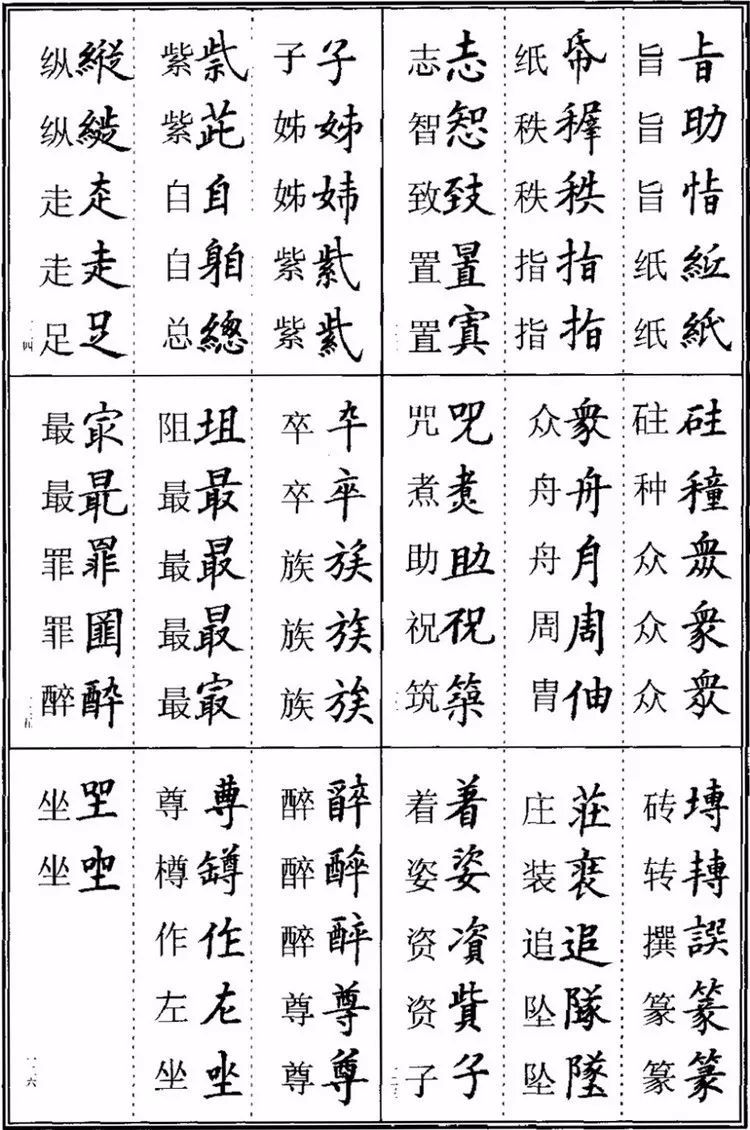 旨旨 旨助 旨恉 纸 纸紙
纸帋 秩 秩秩 指指 指指
志志 智 致致 置置 置寘
砫 种穜 众眾 众衆 众衆
众衆 舟舟 舟月 周周 胄伷
咒咒 煮煮 助助 祝祝 筑築
砖塼 转轉 撰譔 篆篆 篆篆
庄莊 装 追追 坠隊 坠墜
着着 姿姿 资資 资貲 子子
子子 姊姊 姊姉 紫紫 紫紫
紫紫 紫茈 自自 自 总總
纵縱 纵 走 走走 足足
一二四
卒卆 卒卒 族族 族族 族族
阻坥 最最 最最 最最 最㝡
最㝡 最最 罪罪 罪 醉酔
一二五
醉 醉醉 醉酔 尊尊 尊尊
尊尊 樽罇 作作 左左 坐坐
坐 坐
一二六